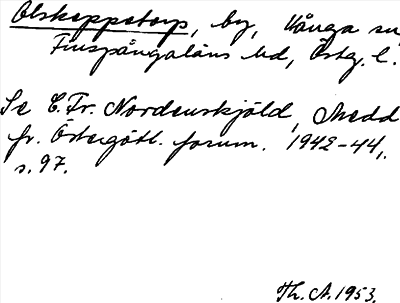 Olskeppstorp, by, Vånga sn
Finspångaläns hd, Östg. l.
Se C. Fr. Nordenskjöld, Medd
fr. Östergötl. fornm. 1942-44,
s. 97.
Th. A. 1953.